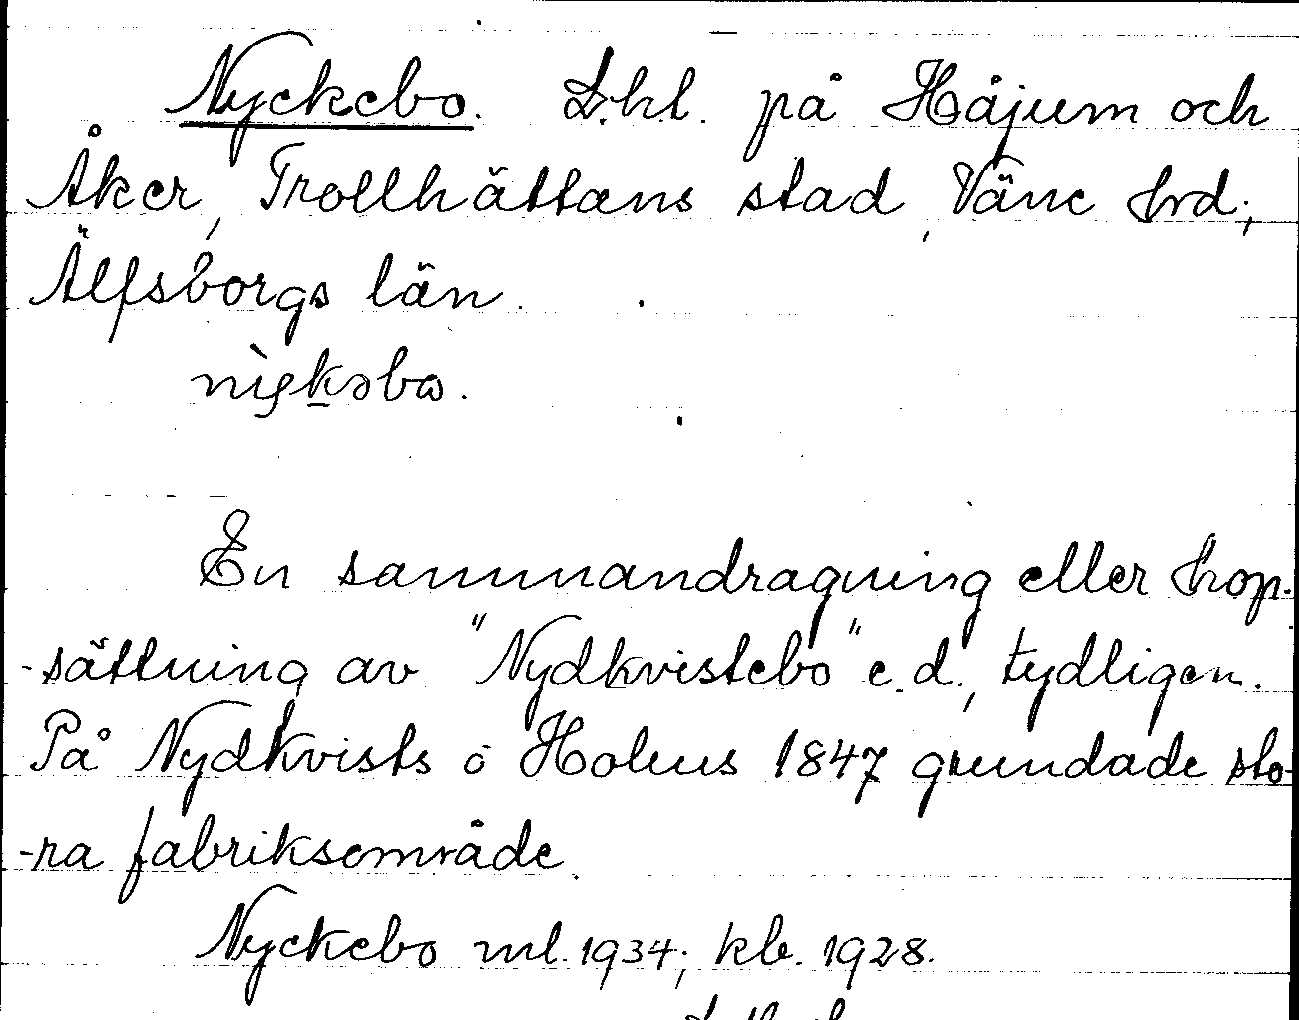 Nyckebo. L.hl. på Håjum och
Åker, Trollhättans stad, Väne hrd;
Älfsborgs län.
En sammandragning eller hop-
-sättning av "Nydkvistebo" e.d., tydligen.
På Nydkvists o Holms 1847 grundade sto-
-ra fabriksområde.
Nyckebo ml. 1934; kb. 1928.